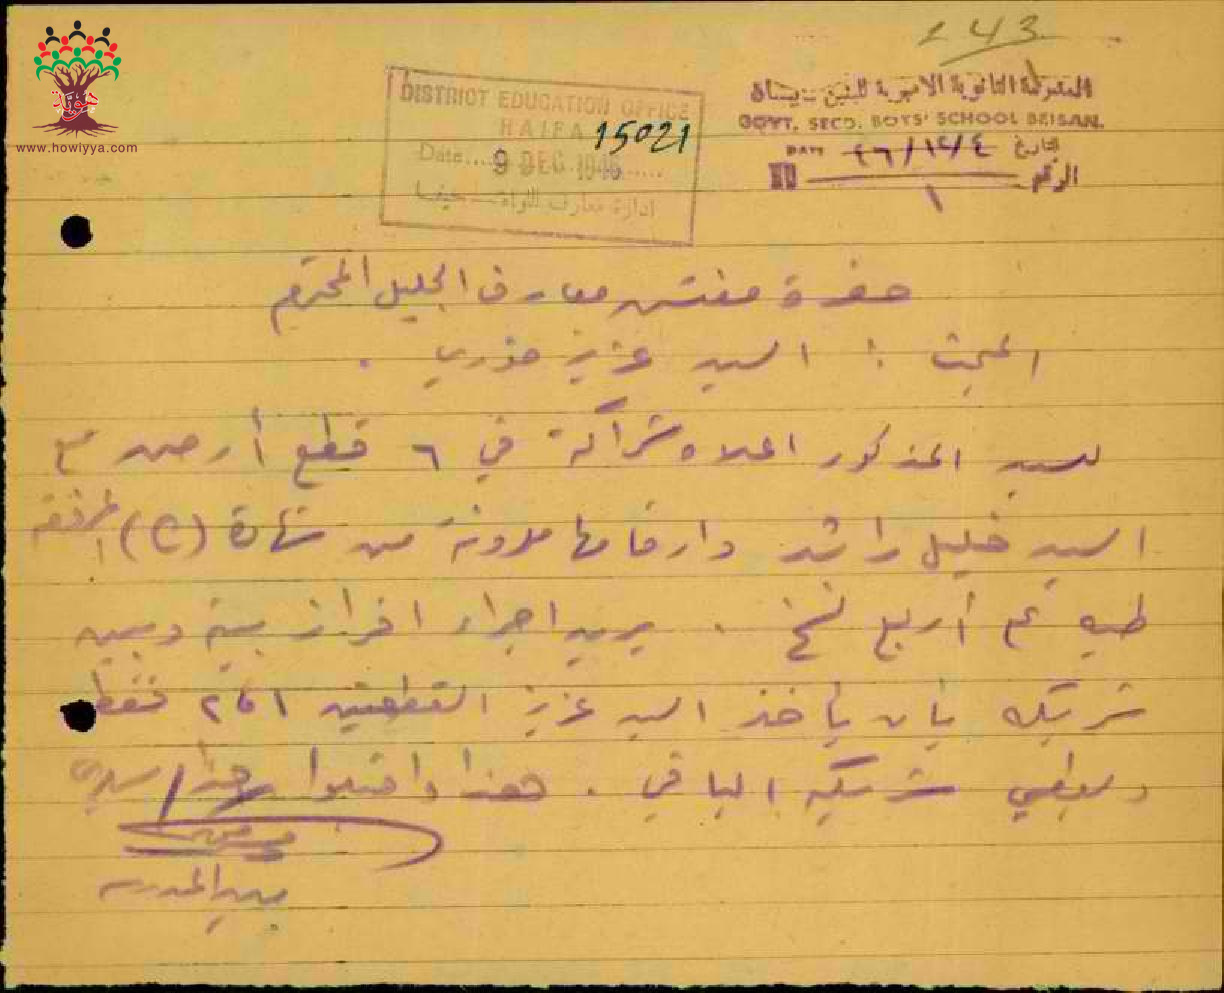 143
المدرسة الثانوية الاميرية للبنين - بيسان
GOVT. SECD. BOYS' SCHOOL BEISAN.
DATE ٤٦/١٢/٤ التاريخ
NO ١ الرقم
DISTRICT EDUCATION OFFICE
HAIFA 15021
Date..... 9 DEC 1946 .....
ادارة معارف اللواء - حيفا
www.howiyya.com
هوية
حضرة مفتش معارف الجليل المحترم
المبحث : السيد عزيز خوري .
للسيد المذكور اعلاه شراكة في ٦ قطع أرض مع
السيد خليل راشد وارقامها مدونة من شهادة (C) المرفقة
طيه على أربع نسخ . يريد اجراء افراز بينه وبين
شريكه بأن يأخذ السيد عزيز القطعتين ١ و ٢ فقط
ويعطي شريكه الباقي . هذا واقبلوا
مدير المدرسة